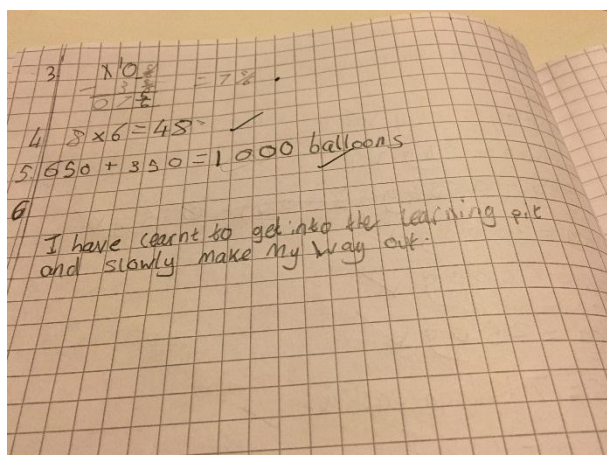 3.
4 8 x 6 = 48
5. 650 + 350 = 1000 balloons
6
I have learnt to get into the learning pit
and slowly make my way out.